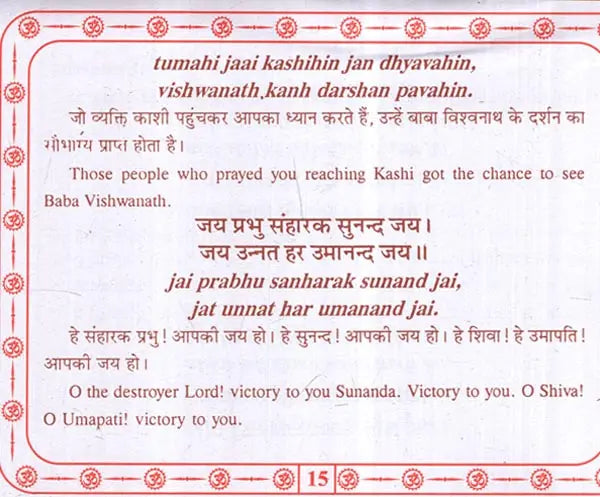 tumahi jaai kashihin jan dhyavahin,
vishwanath kanh darshan pavahin.
जो व्यक्ति काशी पहुंचकर आपका ध्यान करते हैं, उन्हें बाबा विश्वनाथ के दर्शन का
सौभाग्य प्राप्त होता है।
Those people who prayed you reaching Kashi got the chance to see
Baba Vishwanath.
जय प्रभु संहारक सुनन्द जय।
जय उन्नत हर उमानन्द जय॥
jai prabhu sanharak sunand jai,
jat unnat har umanand jai.
हे संहारक प्रभु! आपकी जय हो। हे सुनन्द! आपकी जय हो। हे शिवा! हे उमापति!
आपकी जय हो।
O the destroyer Lord! victory to you Sunanda. Victory to you. O Shiva!
O Umapati! victory to you.
15